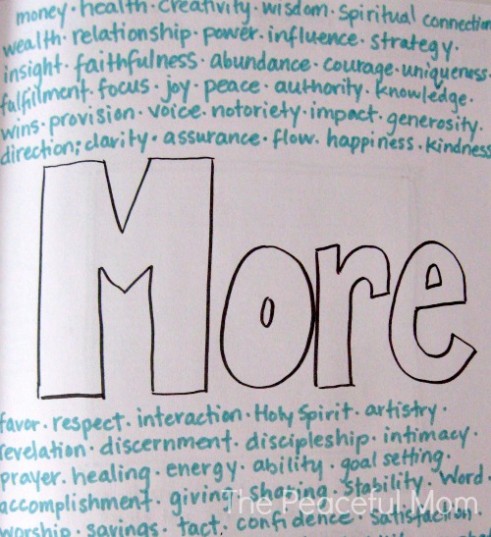 money · health · Creativity · wisdom · Spiritual connection
wealth · relationship · power · influence · strategy ·
insight · faithfulness · abundance · courage · uniqueness ·
fulfillment · focus · joy · peace · authority · knowledge ·
wins · provision · voice · notoriety · impact · generosity ·
direction; clarity · assurance · flow · happiness · kindness
More
favor · respect · interaction · Holy Spirit · artistry ·
revelation · discernment · discipleship · intimacy ·
prayer · healing · energy · ability · goal setting ·
accomplishment · giving · sharing · stability · Word ·
The Peaceful Mom
worship · savings · tact · confidence · satisfaction